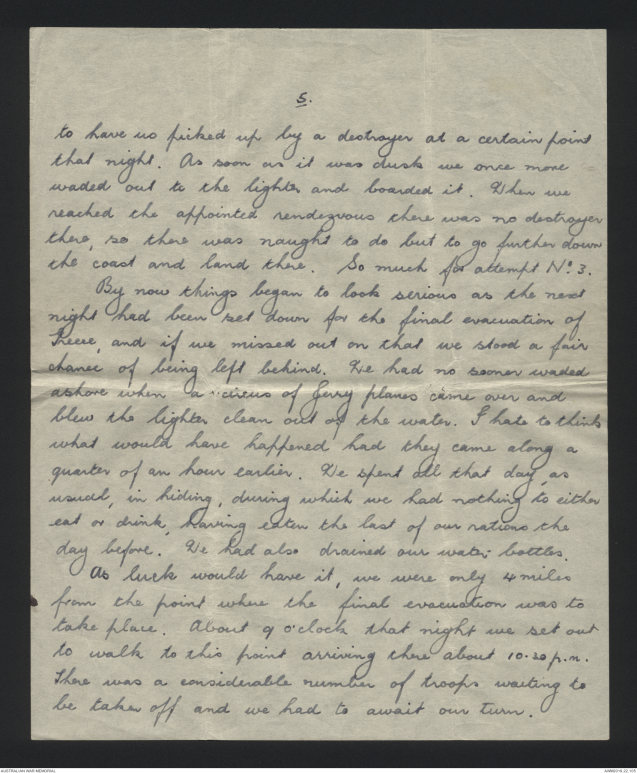 5.
to have us picked up by a destroyer at a certain point
that night. As soon as it was dusk we once more
waded out to the lighter and boarded it. When we
reached the appointed rendezvous there was no destroyer
there, so there was naught to do but to go further down
the coast and land there. So much for attempt No. 3.
By now things began to look serious as the next
night had been set down for the final evacuation of
Greece, and if we missed out on that we stood a fair
chance of being left behind. We had no sooner waded
ashore when a circus of Jerry planes came over and
blew the lighter clean out of the water. I hate to think
what would have happened had they came along a
quarter of an hour earlier. We spent all that day, as
usual, in hiding, during which we had nothing to either
eat or drink, having eaten the last of our rations the
day before. We had also drained our water bottles.
As luck would have it, we were only 4 miles
from the point where the final evacuation was to
take place. About 9 o'clock that night we set out
to walk to this point arriving there about 10.30 p.m.
There was a considerable number of troops waiting to
be taken off and we had to await our turn.
AUSTRALIAN WAR MEMORIAL